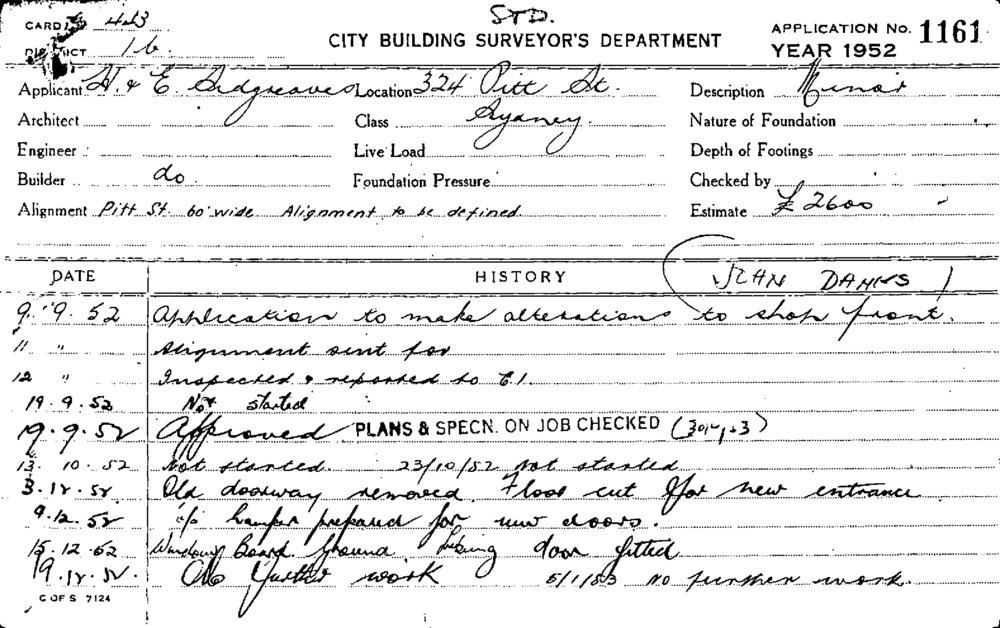 STD.
CARD No 443
DISTRICT 1b.
CITY BUILDING SURVEYOR'S DEPARTMENT
APPLICATION No. 1161
YEAR 1952
Applicant H. & E. Sidgreaves Location 324 Pitt St. Description Minor
Architect Class Sydney. Nature of Foundation
Engineer Live Load Depth of Footings
Builder do Foundation Pressure Checked by
Alignment Pitt St. 60' wide. Alignment to be defined. Estimate £2600
DATE HISTORY
9. 9. 52 Application to make alterations to shop front.
11 " Alignment sent for
12 " Inspected & reported to C.I.
19.9.52 Not started
19.9.52 Approved PLANS & SPECN. ON JOB CHECKED
13.10.52 Not started. 23/10/52 Not started
3.12.52 Old doorway removed. Floor cut for new entrance
9.12.52 prepared for new doors.
15.12.52 Board door fitted
19.12.52 No further work 5/1/53 No further work.
C OF S 7124